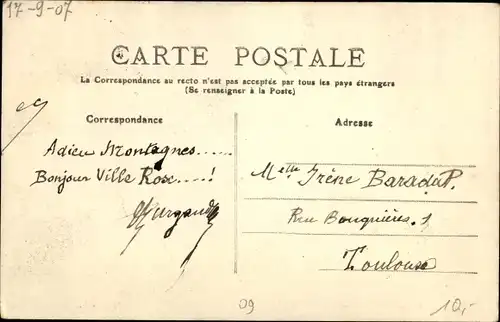 17-9-07
CARTE POSTALE
La Correspondance au recto n'est pas acceptée par tous les pays étrangers
(Se renseigner à la Poste)
Correspondance
Adresse
Adieu Montagnes.....
Bonjour Ville Rose.....!
Melle Irène Baradat.
Rue Bouquières. 1
Toulouse
09
10,-